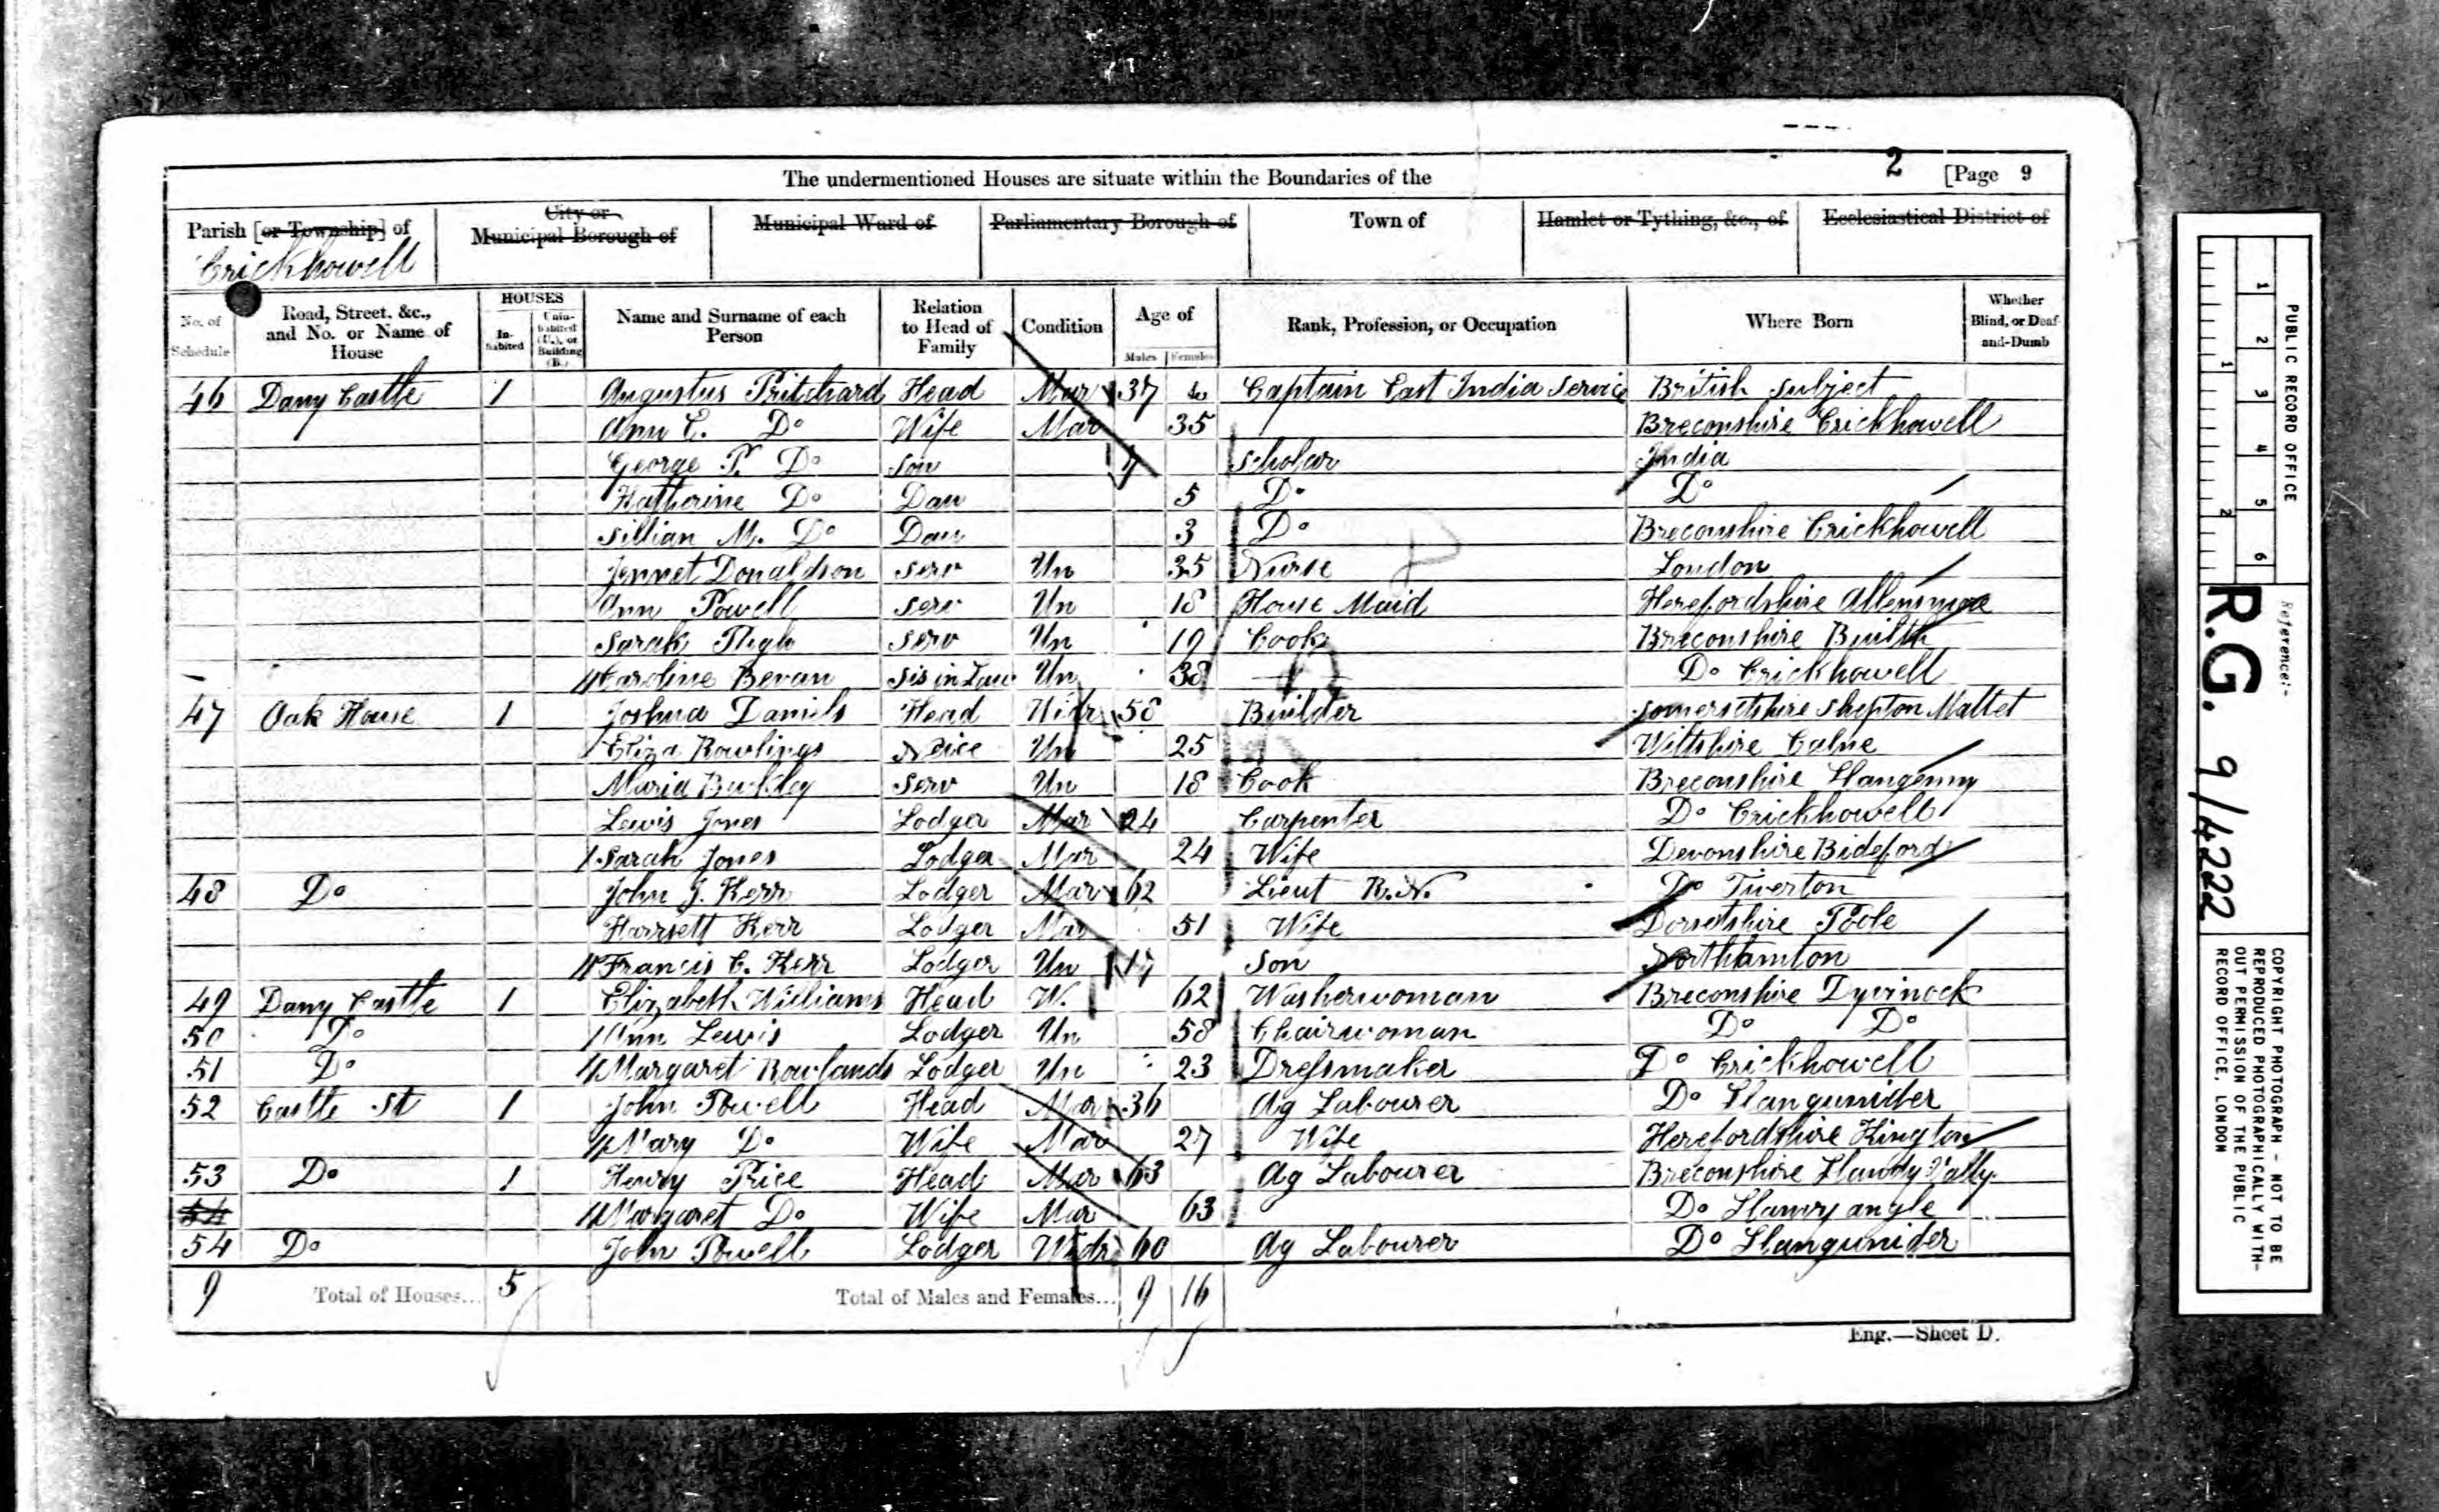 2 [Page 9
The undermentioned Houses are situate within the Boundaries of the
Parish [or Township] of City or Municipal Borough of Municipal Ward of Parliamentary Borough of Town of Hamlet or Tything, &c., of Ecclesiastical District of
Crickhowell
No. of Schedule Road, Street, &c., and No. or Name of House HOUSES Inhabited Uninhabited (U.), or Building (B.) Name and Surname of each Person Relation to Head of Family Condition Age of Males Females Rank, Profession, or Occupation Where Born Whether Blind, or Deaf-and-Dumb
46 Dany Castle 1 Augustus Pritchard Head Mar 37 Captain East India Service British Subject
Ann E. Do Wife Mar 35 Breconshire Crickhowell
George P. Do Son 7 Scholar India
Katherine Do Dau 5 Do Do
Lillian M. Do Dau 3 Do Breconshire Crickhowell
Jennet Donaldson Serv Un 35 Nurse London
Ann Powell Serv Un 18 House Maid Herefordshire Allensmore
Sarah Serv Un 19 Cook Breconshire Builth
Caroline Bevan Sis in Law Un 38 Do Crickhowell
47 Oak House 1 Joshua Daniels Head Widr 58 Builder Somersetshire Shepton Mallet
Eliza Rawlings Neice Un 25 Wiltshire Calne
Maria Buckley Serv Un 18 Cook Breconshire Llangenny
Lewis Jones Lodger Mar 24 Carpenter Do Crickhowell
Sarah Jones Lodger Mar 24 Wife Devonshire Bideford
48 Do John J. Kerr Lodger Mar 62 Lieut R.N. Do Tiverton
Harrsett Kerr Lodger Mar 51 Wife Dorsetshire Poole
Francis C. Kerr Lodger Un 17 Son Northamton
49 Dany Castle 1 Elizabeth Williams Head W. 62 Washerwoman Breconshire Dyvinock
50 Do Ann Lewis Lodger Un 58 Chairwoman Do Do
51 Do Margaret Rowlands Lodger Un 23 Dressmaker Do Crickhowell
52 Castle St 1 John Powell Head Mar 36 Ag Labourer Do Llangunider
Mary Do Wife Mar 27 Wife Herefordshire Kington
53 Do 1 Henry Price Head Mar 63 Ag Labourer Breconshire
54 Margaret Do Wife Mar 63 Do
54 Do John Powell Lodger Widr 60 Ag Labourer Do Llangunider
9 Total of Houses... 5 Total of Males and Females... 9 16
Eng.—Sheet D.
PUBLIC RECORD OFFICE
1 2 3 4 5 6
1 2
Reference:-
R.G. 9/4222
COPYRIGHT PHOTOGRAPH - NOT TO BE
REPRODUCED PHOTOGRAPHICALLY WITH-
OUT PERMISSION OF THE PUBLIC
RECORD OFFICE, LONDON